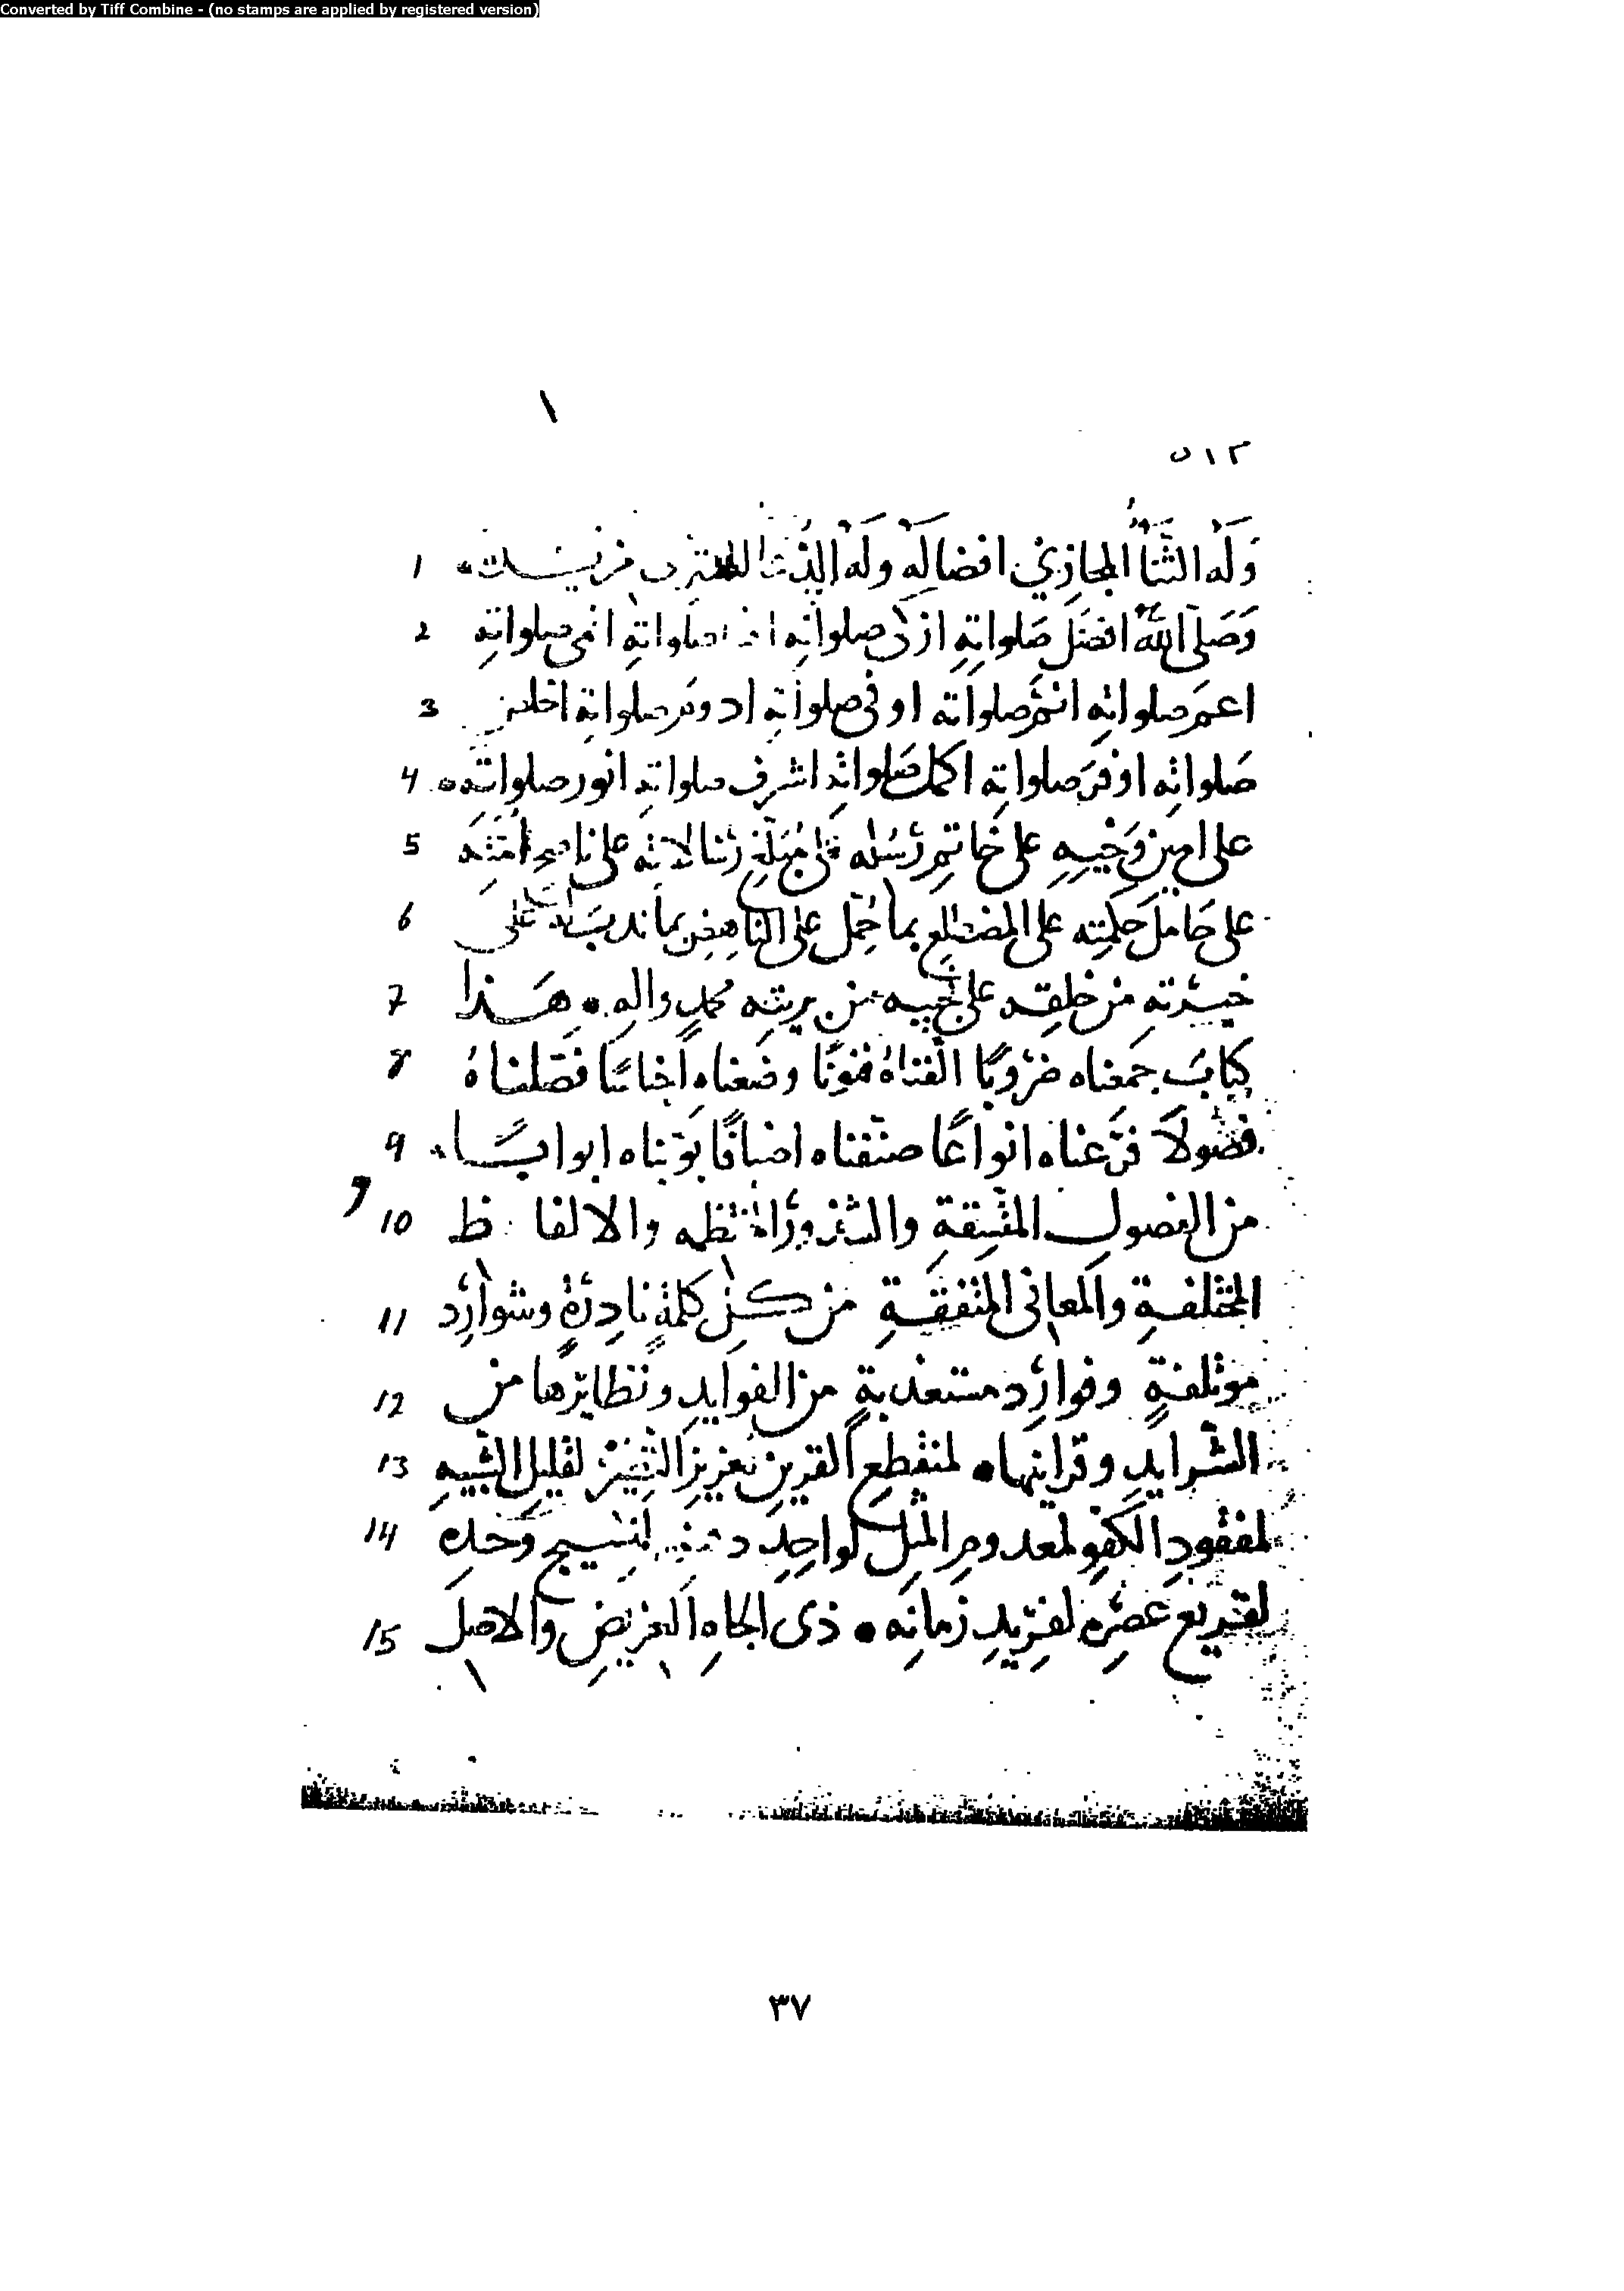 Converted by Tiff Combine - (no stamps are applied by registered version)
١
٥١٢
وَلَهُ الثَّنَاُ المجازي افضالَهُ وَلَهُ الدُّعَا 1
وَصَلى اللهُ افضَلَ صَلواتِهِ ازكى صلواتِه صلواتِهِ انمى صلواتِهِ 2
اعم صلواتِه اتمّ صلواتِه اوفى صلواتِه ادوَم صلواتِه اخلص 3
صَلواتِه اوفَر صلواتِه اكمل صَلواتِه اشرف صلواتِه انور صلواتِه 4
على امين وَحْيِهِ على خاتِمِ رُسُله على مُبَلِّغِ رسالاتِه على ناصح امّتِه 5
على حَامل حكمتِه على المضطلعِ بما حُمّل على الناهِض بما ندب على 6
خيرتِه من خلقِه على نجيبه من بريتِه محمدٍ واله هَذا 7
كتابٌ جمَعناه ضرُوبًا الّفناهُ فنونًا وضَعناه اجناسًا فَصّلناهُ 8
فصُولاً فرّعناه انواعًا صنّفناه اصنافًا بوّبناه ابوابًا 9
من الفصول المتّسِقةِ والشذورِ المنتظمه والالفاظ 10
المختلفةِ والمعانى المتفقَةِ من كلّ كلمةٍ نادِرَةٍ وشوارِد 11
موتلفةٍ وفوارِد مستعذبةٍ من الفوايدِ ونظايرها من 12
الشرايدِ وقراينها لمنقطعِ القرين لعزيزِ النَّظير لقليل الشّبيهِ 13
لمفقودِ الكفوِ لمعدومِ المثِل لواحِدِ لنسيجِ وَحدِه 14
لقريع عصرِه لفرِيدِ زمانِه ذى الجاهِ العَريضِ والاصلَ 15
٣٧